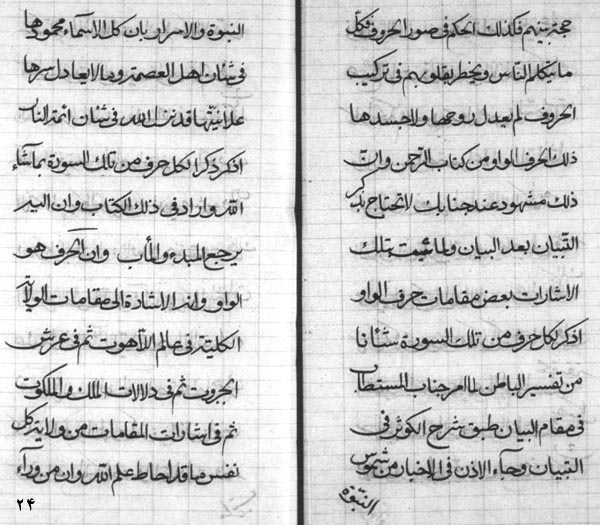 حجة ربهم فكذلك الحكم في صور الحروف فكل
ما يتكلم الناس ويخطر بقلوبهم في تركيب
الحروف لم يعدل روحها ولا جسدها
ذلك الحرف الواو من كتاب الرحمن وان
ذلك مشهود عند جنابك لا تحتاج بذكر
التبيان بعد البيان ولما ثبت تلك
الاشارات بعض مقامات حرف الواو
اذكر لكل حرف من تلك السورة شئانا
من تفسير الباطن لما امر جناب المستطاب
في مقام البيان طبق شرح الكوثر في
التبيان وجاء الاذن في الاخبار من شموس
النبوة
النبوة والاسرار بان كل الاسماء محمودها
في شان اهل العصمة وما لا يعادل سرها
علانيتها قد نزل الله في شان ائمة النار
اذكر ذكرا لكل حرف من تلك السورة بما شاء
الله واراد في ذلك الكتاب وان اليه
يرجع المبدء والمآب وان الحرف هو
الواو وانه الاشارة الى مقامات الولاية
الكلية في عالم اللاهوت ثم في عرش
الجبروت ثم في دلالات الملك والملكوت
ثم في اشارات المقامات من ولاية كل
نفس ما قد احاط علم الله وان من وراء
۲۴